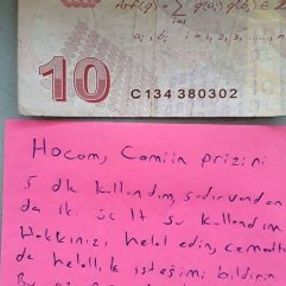 Arf(q) = Σ q(aᵢ) q(bᵢ) ∈ Z
i=1
aᵢ, bᵢ i = 1, 2, 3, ....., n
10
C134 380302
Hocam, Camiin prizini
5 dk kullandım, şadırvandan
da iki üç lt su kullandım
Hakkınızı helal edin, cemaatten
de helallik isteğimi bildirin